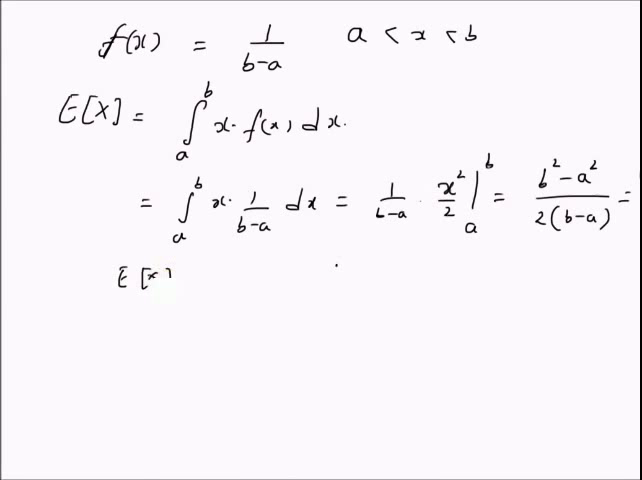 f(x) = 1/(b-a) a < x < b
E[X] = ∫_a^b x. f(x) dx.
= ∫_a^b x. 1/(b-a) dx = 1/(b-a) . x²/2 |_a^b = (b² - a²)/(2(b-a)) =
E [x]